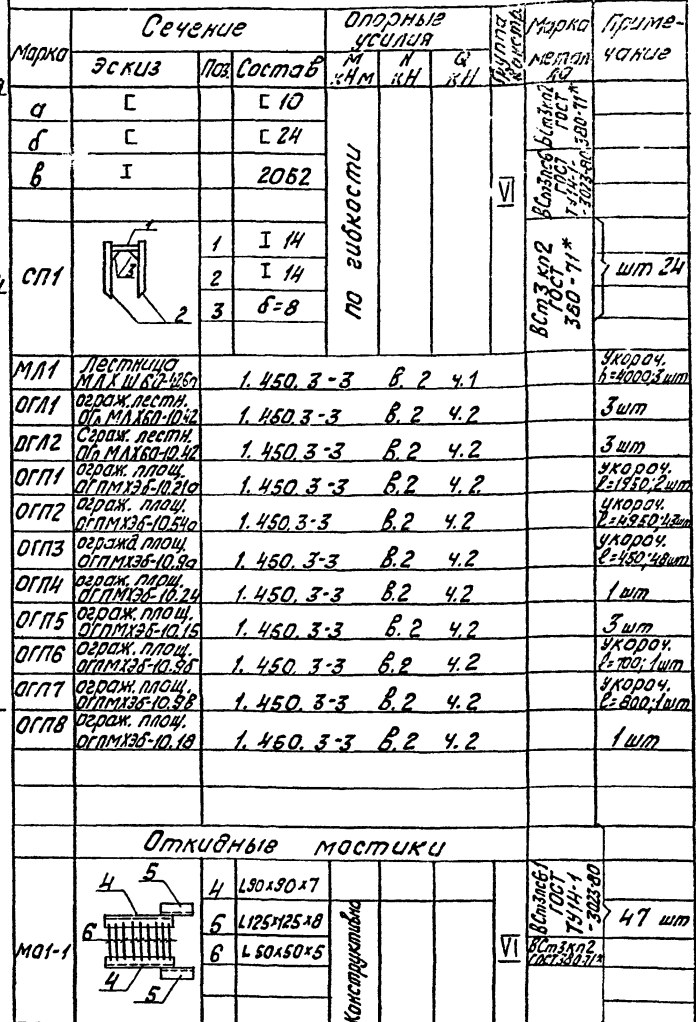 Марка Сечение Опорные усилия Группа констр. Марка метал Приме-чание
эскиз Поз. Состав М кНм N кН Q кН
а [ [ 10 ВСт3кп2 ГОСТ 380-71*
б [ [ 24
в I 20Б2 по гибкости VI
СП1 1 2 3
1 I 14
2 I 14
3 δ=8
ВСт3кп2 ГОСТ 380-71* шт 24
МЛ1 Лестница 1.450.3-3 в.2 ч.1 Укороч. h=4000; 3шт
ОГЛ1 ограж. лестн. ОГл МЛХ60-10.42 1.450.3-3 в.2 ч.2 3 шт
ОГЛ2 Ограж. лестн. ОГл МЛХ60-10.42 1.450.3-3 в.2 ч.2 3 шт
ОГП1 ограж. площ. ОГПМХЭб-10.21а 1.450.3-3 в.2 ч.2 укороч. ℓ=1950; 2шт
ОГП2 ограж. площ. ОГПМХЭб-10.54а 1.450.3-3 в.2 ч.2 укороч. ℓ=4950; 43шт
ОГП3 огражд площ. ОГПМХЭб-10.9а 1.450.3-3 в.2 ч.2 укороч. ℓ=450; 48шт
ОГП4 ограж. площ. ОГПМХЭб-10.24 1.450.3-3 в.2 ч.2 1 шт
ОГП5 ограж. площ. ОГПМХЭб-10.15 1.450.3-3 в.2 ч.2 3 шт
ОГП6 ограж. площ. ОГПМХЭб-10.9б 1.450.3-3 в.2 ч.2 укороч. ℓ=700; 1шт
ОГП7 ограж. площ. ОГПМХЭб-10.9в 1.450.3-3 в.2 ч.2 укороч. ℓ=800; 1шт
ОГП8 ограж. площ. ОГПМХЭб-10.18 1.450.3-3 в.2 ч.2 1 шт
Откидные мостики
МО1-1 4 5 6 4 5
4 L90x90x7
5 L125x125x8
6 L50x50x5
Конструктивно VI
ВСт3пс6-1 ГОСТ ТУ14-1-3023-80
ВСт3кп2 ГОСТ 380-71*
47 шт